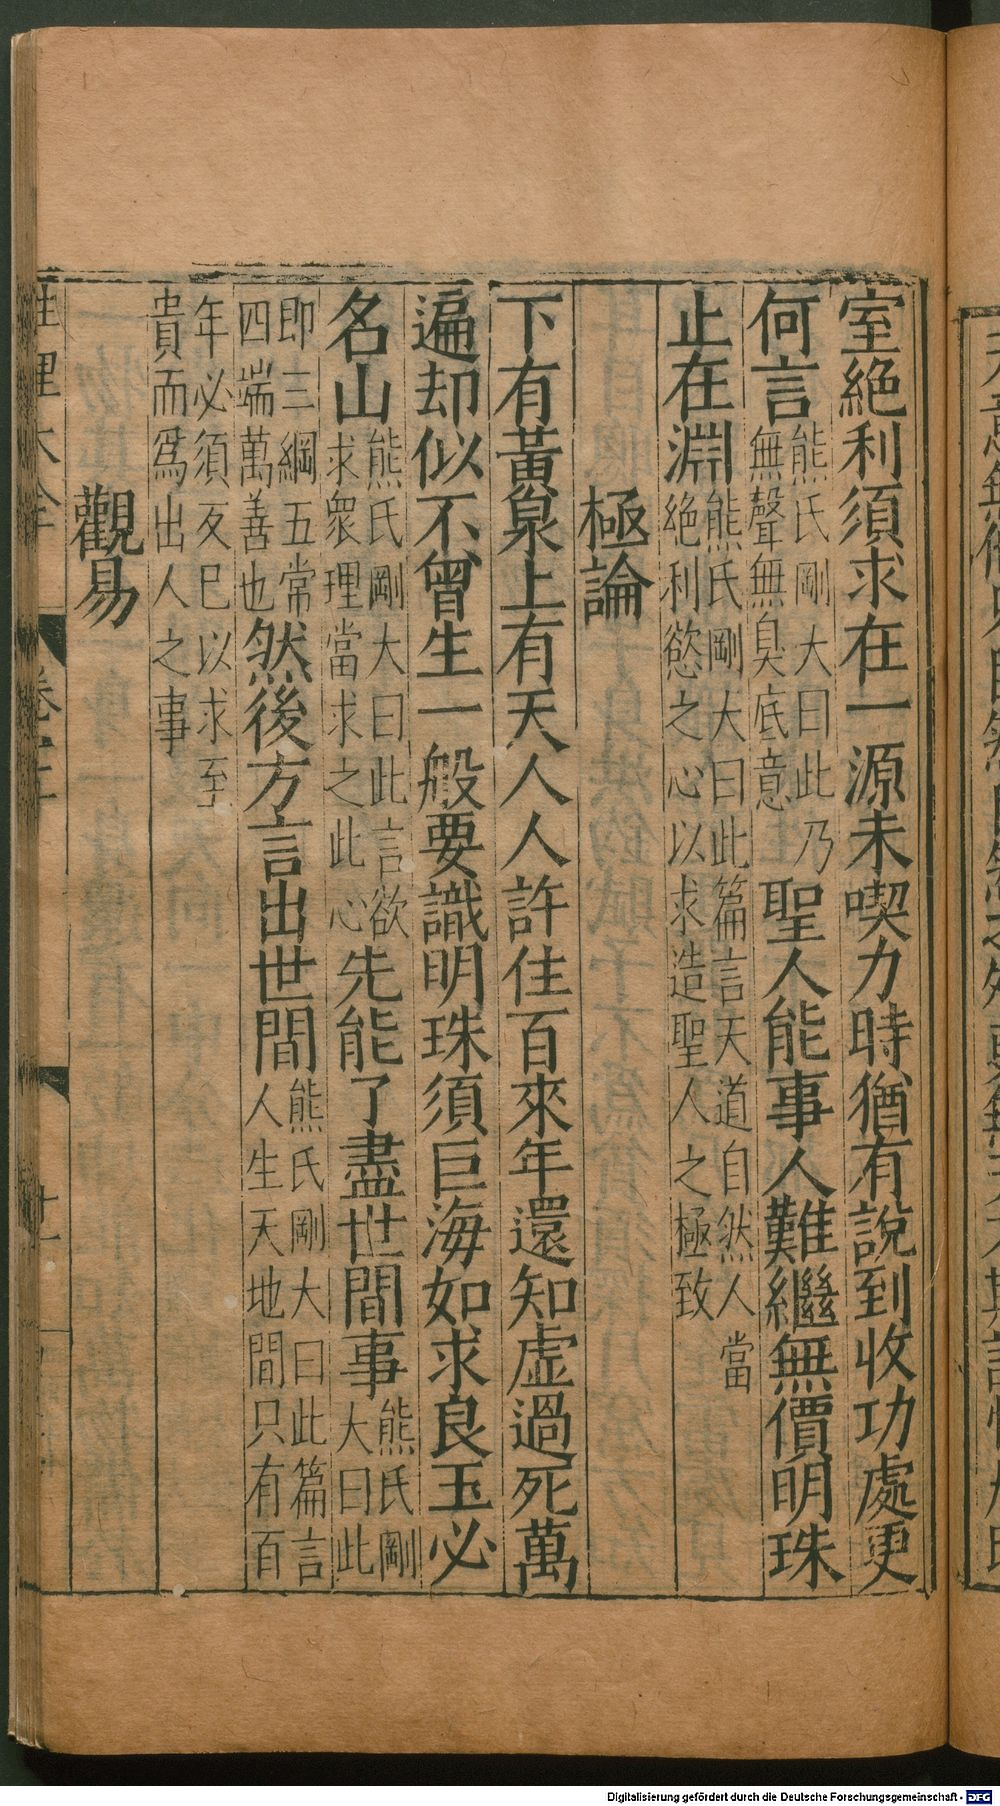 室絕利須求在一源未喫力時猶有說到收功處更
何言
熊氏剛大曰此乃
無聲無臭底意
聖人能事人難繼無價明珠
止在淵
熊氏剛大曰此篇言天道自然人當
絕利慾之心以求造聖人之極致
極論
下有黃泉上有天人人許住百來年還知虛過死萬
遍却似不曾生一般要識明珠須巨海如求良玉必
名山
熊氏剛大曰此言欲
求衆理當求之此心
先能了盡世間事
熊氏剛
大曰此
即三綱五常
四端萬善也
然後方言出世間
熊氏剛大曰此篇言
人生天地間只有百
年必須反已以求至
貴而爲出人之事
觀易
性理大全
Digitalisierung gefördert durch die Deutsche Forschungsgemeinschaft - DFG